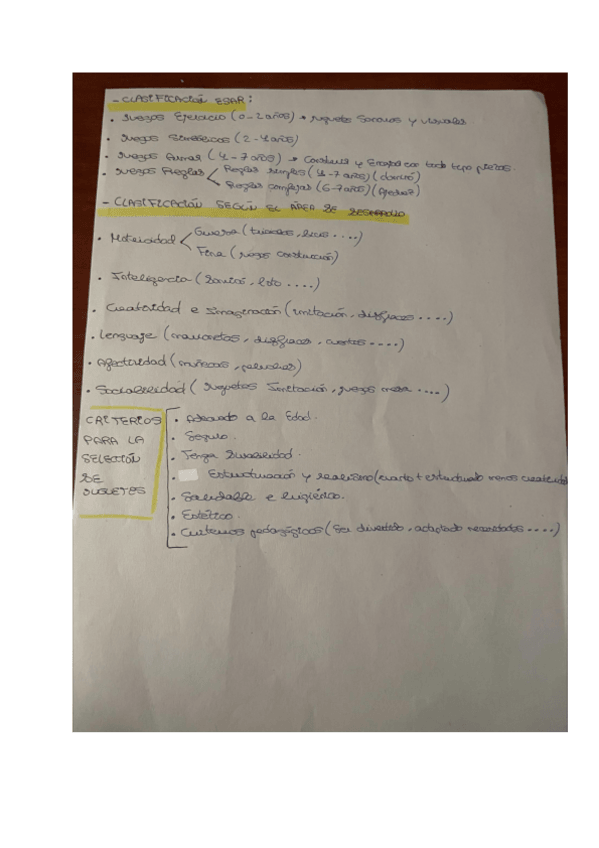 - CLASIFICACIÓN ESAR:
• Juegos Ejercicio (0-2 años) → juguetes sonoros y visuales
• Juegos Simbólicos (2-4 años)
• Juegos Armar (4-7 años) → Construir y Encajar con todo tipo piezas.
• Juegos Reglas < Reglas simples (4-7 años) (dominó)
Reglas complejas (6-7 años) (Ajedrez)
- CLASIFICACIÓN SEGÚN EL ÁREA DE DESARROLLO
• Motricidad < Gruesa (triciclos, bicis ....)
Fina (juegos construcción)
• Inteligencia (dominó, loto ....)
• Creatividad e Imaginación (imitación, disfraces ....)
• Lenguaje (marionetas, disfraces, cuentos ....)
• Afectividad (muñecos, peluches)
• Sociabilidad (Juguetes Imitación, juegos mesa ....)
CRITERIOS PARA LA SELECCIÓN DE JUGUETES
• Adecuado a la Edad.
• Seguro.
• Tenga Durabilidad.
Estructuración y realismo (cuanto + estructurado menos creatividad
• Saludable e higiénico.
• Estético.
• Criterios pedagógicos (Ser divertido, adaptado necesidades ....)